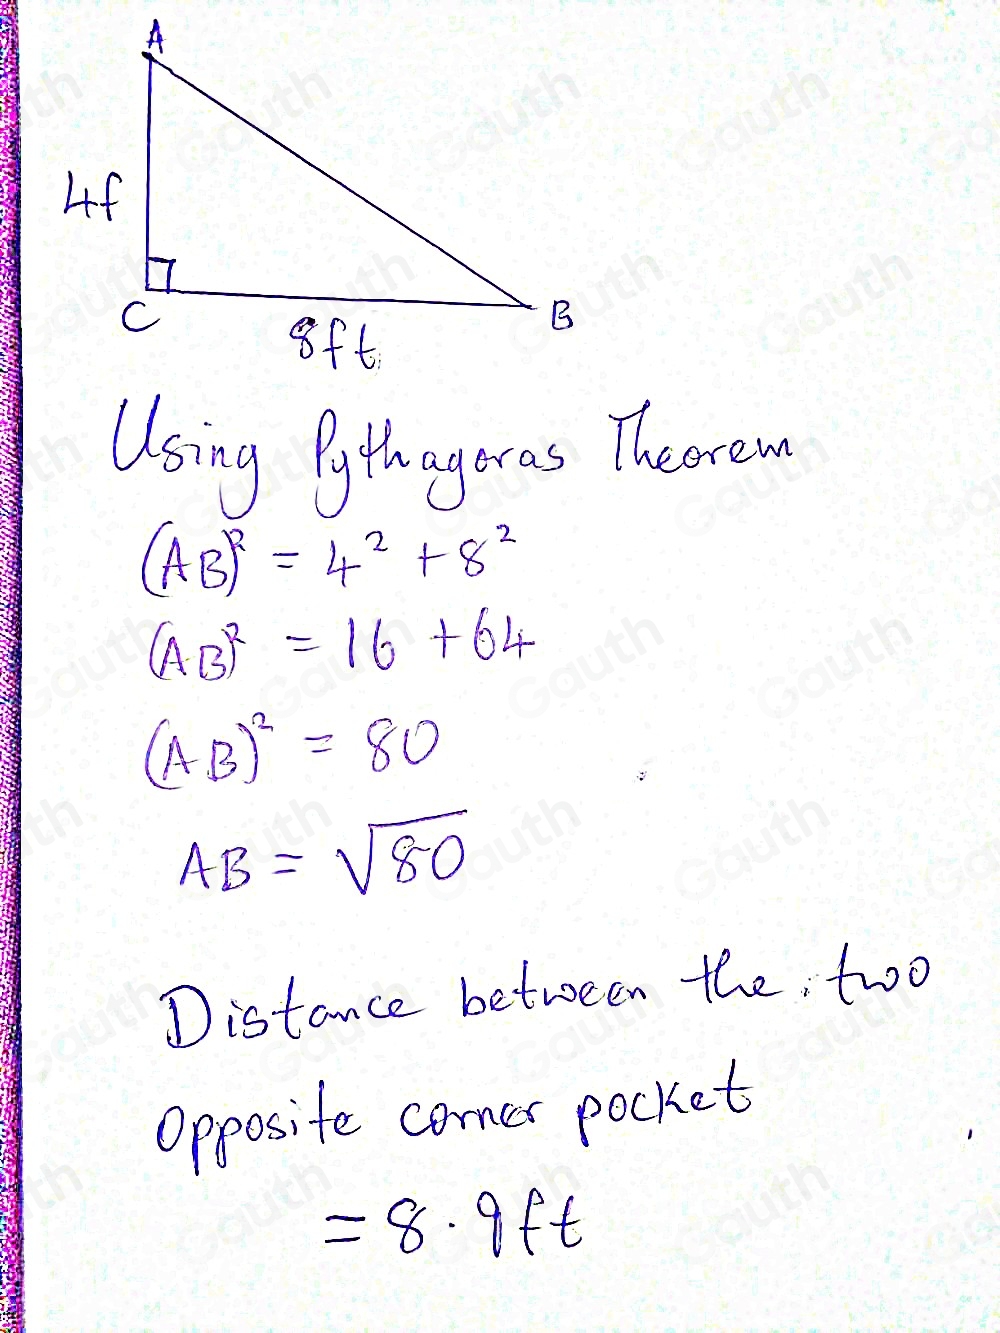 A
4f
C
B
8ft
Using Pythagoras Theorem
(AB)² = 4² + 8²
(AB)² = 16 + 64
(AB)² = 80
AB = √80
Distance between the two
opposite corner pocket
= 8.9ft